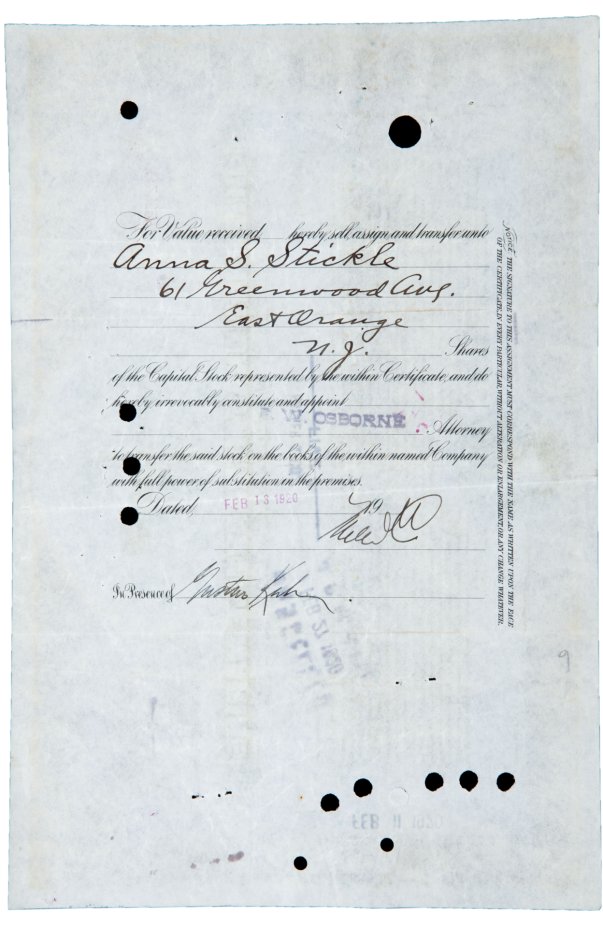 For Value received hereby sell, assign and transfer unto
Anna S. Stickle
61 Greenwood Ave.
East Orange
N. J. Shares
of the Capital Stock represented by the within Certificate, and do
hereby irrevocably constitute and appoint
W. OSBORNE
Attorney
to transfer the said stock on the books of the within named Company
with full power of substitution in the premises.
Dated, FEB 13 1920 19
In Presence of Gustav
NOTICE. THE SIGNATURE TO THIS ASSIGNMENT MUST CORRESPOND WITH THE NAME AS WRITTEN UPON THE FACE
OF THE CERTIFICATE, IN EVERY PARTICULAR, WITHOUT ALTERATION OR ENLARGEMENT, OR ANY CHANGE WHATEVER.
9